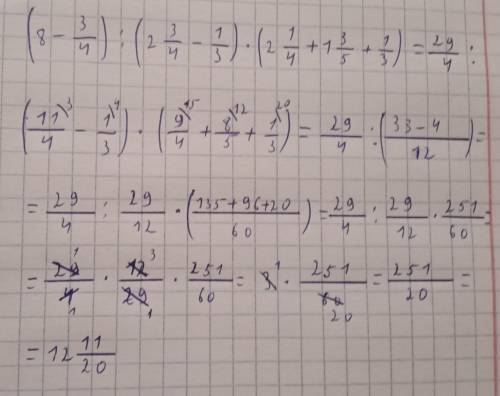 (8 - 3/4) : (2 3/4 - 1/3) · (2 1/4 + 1 3/5 + 1/3) = 29/4 :
(11/4 \3 - 1/3 \4) · (9/4 \15 + 8/5 \12 + 1/3 \20) = 29/4 : (33-4/12) =
= 29/4 : 29/12 · (135+96+20/60) = 29/4 : 29/12 · 251/60 =
= 29/4 · 12/29 · 251/60 = 3 · 251/60 = 251/20 =
= 12 11/20